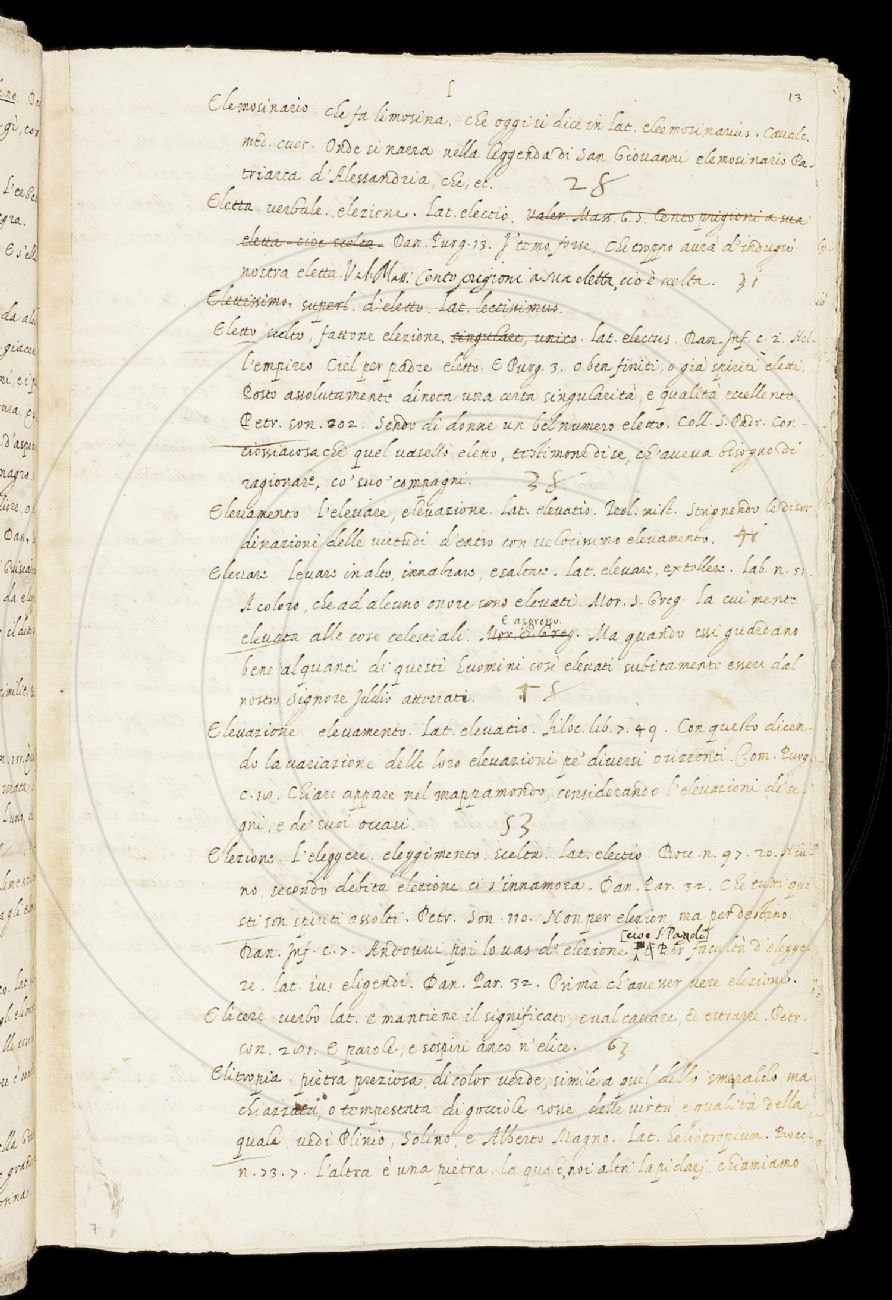 13
Elemosinario che fa limosina, che oggi si dice in lat. eleemosinarius. Cavalc.
med. cuor. Onde si narra nella leggenda di San Giovanni elemosinario Pa-
triarca d'Alessandria, che, et.
Eletta verbale. elezione. Lat. electio. Valer. Mass. 6 5. Cento prigioni a sua
eletta cioè scelta. Dan. Purg. 13. I' temo forse, che troppo avrà d'indugio
nostra eletta Val. Mass. Cento prigioni a sua eletta, cio è scelta.
Elettissimo. superl. d'eletto. Lat. lectisimus.
Eletto scelto, fattone elezione, singulare, unico. lat. electus. Dan. Inf. c. 2. Nel-
l'empireo Ciel per padre eletto. E Purg. 3. o ben finiti, o già spiriti eletti.
Posto assolutamente dinota una certa singularità, e qualità eccellente.
Petr. son. 202. Sendo di donne un bel numero eletto. Coll. S. Padr. Con-
ciossiacosa che quel vasello eletto, testimone di se, ch'aveva bisogno di
ragionare, co' suo' compagni.
Elevamento l'elevare, elevazione. Lat. elevatio. Teol. mist. Strignendo le disor-
dinazioni delle virtudi d'entro con velocissimo elevamento.
Elevare Levare in alto, innalzare, esaltare. Lat. elevare, extollere. Lab. n. 51.
A coloro, che ad alcuno onore sono elevati. Mor. S. Greg. La cui mente
elevata alle cose celestiali. Mor. S. Greg. Ma quando essi guardano
E appresso.
bene alquanti di questi huomini così elevati subitamente essere dal
nostro Signore Iddio atterrati.
Elevazione elevamento. Lat. elevatio. Filoc. lib. 7. 49. Con questo dicen-
do la variazione delle loro elevazioni pe' diversi orizzonti. Com. Purg.
Chiaro appare nel mappamondo, considerando l'elevazioni de' se-
gni, e de' suoi occasi. 53
Elezione L'eleggere. eleggimento. scelta. Lat. electio. Bocc. n. 97. 20. Niu-
no, secondo debita elezione ci s'innamora. Dan. Par. 32. Che tutti que-
sti son spiriti assolti. Petr. Son. 110. Non per elezion, ma per destino.
[cioè S. Pagolo]
Dan. Inf. c. Andovvi poi lo vas d'elezione Per facultà d'elegge-
re. lat. ius eligendi. Dan. Par. 32. Prima ch'avesser vere elezioni.
Elicere verbo lat. e mantiene il significato, e val cavare, ed estrarre. Petr.
son. E parole, e sospiri anco n'elice.
Elitropia pietra preziosa, di color verde, simile a quel dello smeraldo ma
chiazzata, o tempestata di gocciole rosse delle virtù, e qualità della
quale vedi Plinio, Solino, e Alberto Magno. Lat. heliotropium. Bocc.
n. 73. 7. L'altra è una pietra, la quale, noi altri lapidarj chiamiamo